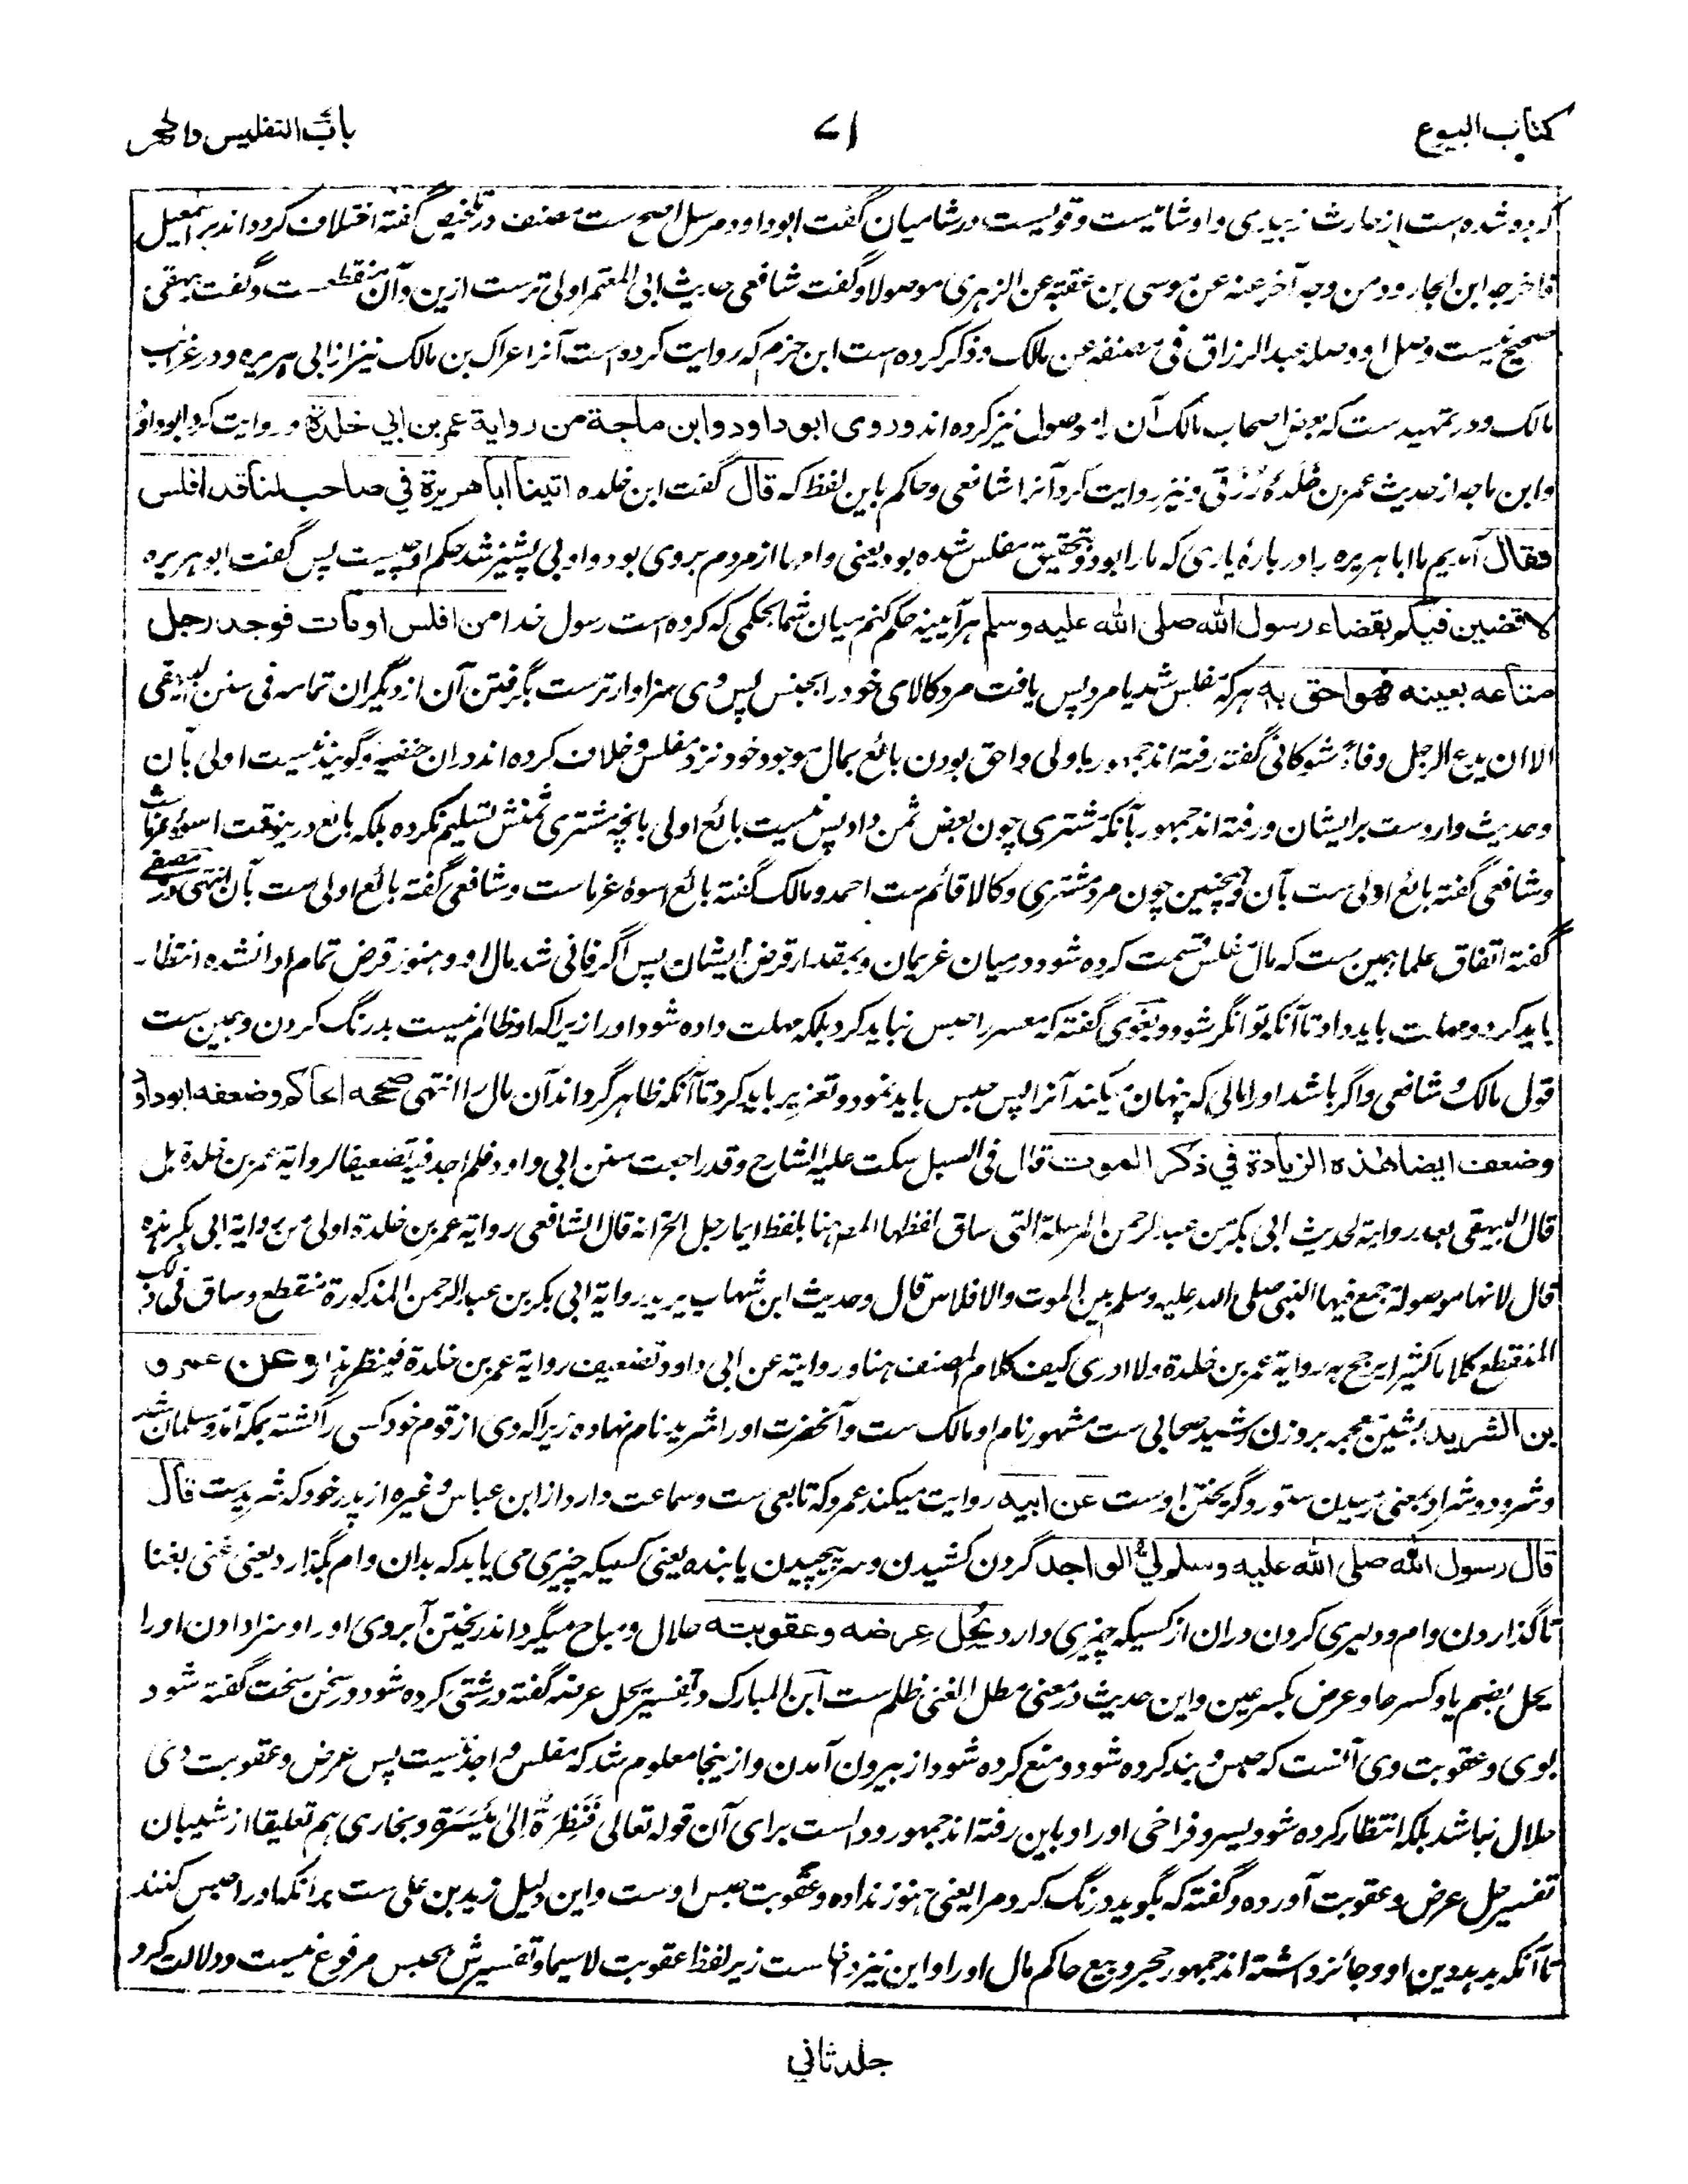 کتاب البیوع
۷۱
باب التفلیس والحجر
که بدو شده ست از حارث زبیدی و او شامیست و قویست در شامیان گفت ابوداود مرسل اصح ست مصنف در تلخیص گفته اختلاف کرده اند بر اسمعیل
فاخرجه ابن الجارود من وجه آخر عنه عن موسی بن عقبة عن الزهری موصولا و گفت شافعی حدیث ابی المعتمر اولی ترست ازین و آن منقطع ست و گفت بیهقی
صحیح نیست وصل او و وصله عبدالرزاق فی مصنفه عن مالک و ذکر کرده است ابن حزم که روایت کرده است آنرا عراک بن مالک نیز از ابی هریره و در غرائب
مالک و در تمهید ست که بعض اصحاب مالک آن را موصول نیز کرده اند وروی ابو داود وابن ماجة من روایة عمر بن ابی خلدة و روایت کرد ابوداود
و ابن ماجه از حدیث عمر بن خلده زرقی و نیز روایت کرد آنرا شافعی و حاکم باین لفظ که قال گفت ابن خلده اتینا ابا هریرة فی صاحب لنا قد افلس
فقال آمدیم ما ابا هریره را در باره یاری که ما را بود و بتحقیق مفلس شده بود یعنی وامها از مردم بر وی بود و او بی پشیز شد حکم او چیست پس گفت ابوهریره
لاقضین فیکم بقضاء رسول الله صلی الله علیه وسلم هر آیینه حکم کنم میان شما بحکمی که کرده است رسول خدا من افلس او مات فوجد رجل
متاعه بعینه فهو احق به هر که مفلس شد یا مرد پس یافت مرد کالای خود را بجنس پس وی سزاوارترست بگرفتن آن از دیگران تمامه فی سنن البیهقی
الا ان یدع الرجل وفاء شوکانی گفته رفته اند جمهور باولی و احق بودن بائع بمال موجود خود نزد مفلس و خلاف کرده اند دران حنفیه و گویند نیست اولی بآن
و حدیث واردست بر ایشان و رفته اند جمهور بآنکه مشتری چون بعض ثمن داد پس نیست بائع اولی بانچه مشتری ثمنش تسلیم نکرده بلکه بائع درینوقت اسوه غرماست
و شافعی گفته بائع اولی ست بآن و همچنین چون مرد مشتری و کالا قائم ست احمد و مالک گفته بائع اسوه غرماست و شافعی گفته بائع اولی ست بآن انتهی و در مصفی
گفته اتفاق علما همین ست که مال مفلس قسمت کرده شود درمیان غریمان و بمقدار قرض ایشان پس اگر فانی شد مال او و هنوز قرض تمام ادا نشده انتظار
باید کرد و مهلت باید داد تا آنکه توانگر شود و بغوی گفته که معسر را حبس نباید کرد بلکه مهلت داده شود او را زیرا که او ظالم نیست بدرنگ کردن و همین ست
قول مالک و شافعی و اگر باشد او را مالی که پنهان میکند آنرا پس حبس باید نمود و تعزیر باید کرد تا آنکه ظاهر گرداند آن مال را انتهی صححه الحاکم وضعفه ابو داود
وضعف ایضا هذه الزیادة فی ذکر الموت قال فی السبل سکت علیه الشارح وقد راجعت سنن ابی داود فلم اجد فیه تضعیفا لروایة عمر بن خلدة بل
قال البیهقی بعد روایة لحدیث ابی بکر بن عبدالرحمن المرسلة التی ساق لفظها المص هنا بلفظ ایما رجل الخ انه قال الشافعی روایة عمر بن خلدة اولی من روایة ابی بکر هذه
قال لانها موصولة جمع فیها النبی صلی الله علیه وسلم بین الموت والافلاس قال وحدیث ابن شهاب یرید روایة ابی بکر بن عبدالرحمن المذکورة منقطع وساق فی ذلک
المنقطع کلاما کثیرا یرجح به روایة عمر بن خلدة ولا ادری کیف کلام المصنف هنا وروایته عن ابی داود تضعیف روایة عمر بن خلدة فینظر هذا وعن عمرو
بن الشرید بشین معجمه بر وزن رشید صحابی ست مشهور نام او مالک ست و آنحضرت او را شرید نام نهاده زیرا که وی از قوم خود کسی را کشته بمکه آمد و مسلمان شد
و شرود و شراد بمعنی رمیدن ستور و گریختن اوست عن ابیه روایت میکند عمرو که تابعی ست و سماعت دارد از ابن عباس و غیره از پدر خود که شریدست قال
قال رسول الله صلی الله علیه وسلم لی الواجد گردن کشیدن و سر پیچیدن یابنده یعنی کسیکه چیزی می یابد که بدان وام بگذارد یعنی غنی بغنا
تا گذاردن وام و دلیری کردن دران از کسیکه چیزی دارد یحل عرضه وعقوبته حلال و مباح میگرداند ریختن آبروی او را و سزا دادن او را
یحل بضم یا و کسر حا و عرض بکسر عین و این حدیث در معنی مطل الغنی ظلم ست ابن المبارک در تفسیر یحل عرضه گفته درشتی کرده شود و سخن سخت گفته شود
بوی و عقوبت وی آنست که حبس و بند کرده شود و منع کرده شود از بیرون آمدن و ازینجا معلوم شد که مفلس واجد نیست پس عرض و عقوبت وی
حلال نباشد بلکه انتظار کرده شود یسر و فراخی او را و باین رفته اند جمهور و دال ست برای آن قوله تعالی فنظرة الی میسرة و بخاری هم تعلیقا از سفیان
تفسیر حل عرض و عقوبت آورده و گفته که بگوید درنگ کرد مرا یعنی هنوز نداده و عقوبت حبس اوست و این دلیل زید بن علی ست بر انکه او را حبس کنند
تا آنکه بدهد دین او و جائز داشته اند جمهور حجر و بیع حاکم مال او را و این نیز داخل ست زیر لفظ عقوبت لاسیما و تفسیرش بحبس مرفوع نیست و دلالت کرد
جلد ثانی